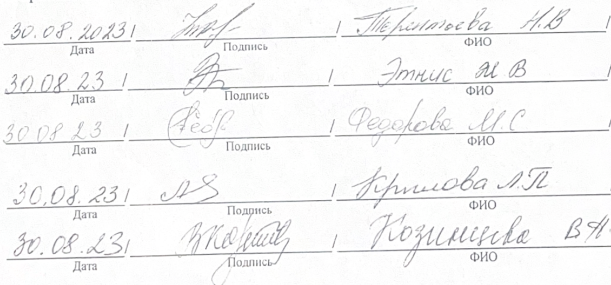 30.08.2023 / / Терентьева Н.В /
Дата Подпись ФИО
30.08.23 / / Этнис М В /
Дата Подпись ФИО
30 08 23 / Федор / Федорова М.С /
Дата Подпись ФИО
30.08.23 / / Крылова Л.П /
Дата Подпись ФИО
30.08.23 / / Козинцева В Н.
Дата Подпись ФИО